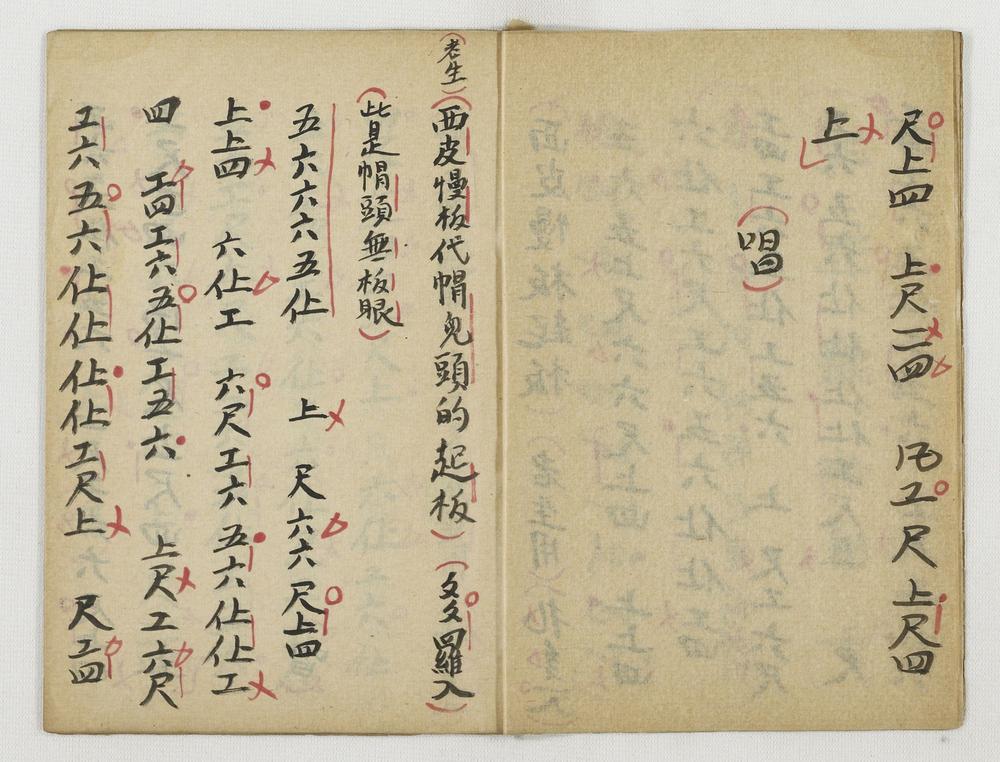 尺上四 上尺一四 凡工尺上尺四
上
(唱)
(老生)(西皮慢板代帽兒頭的起板)(多多羅入)
(此是帽頭無板眼)
五六六六五仩 上 尺六六尺上四
上上四 六仩工 六尺工六五六仩仩工
四 工四工六五仩工五六 上尺工六尺
工六五六仩仩仩仩工尺上 尺工四